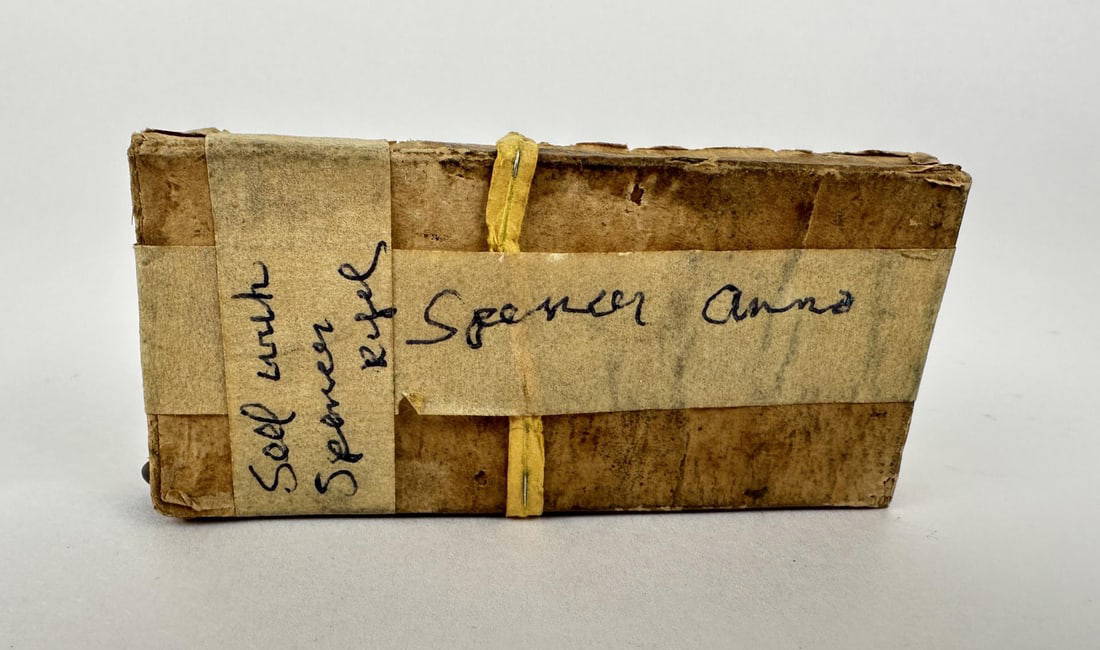 Sell with
Spencer
Rifel
Spencer Ammo